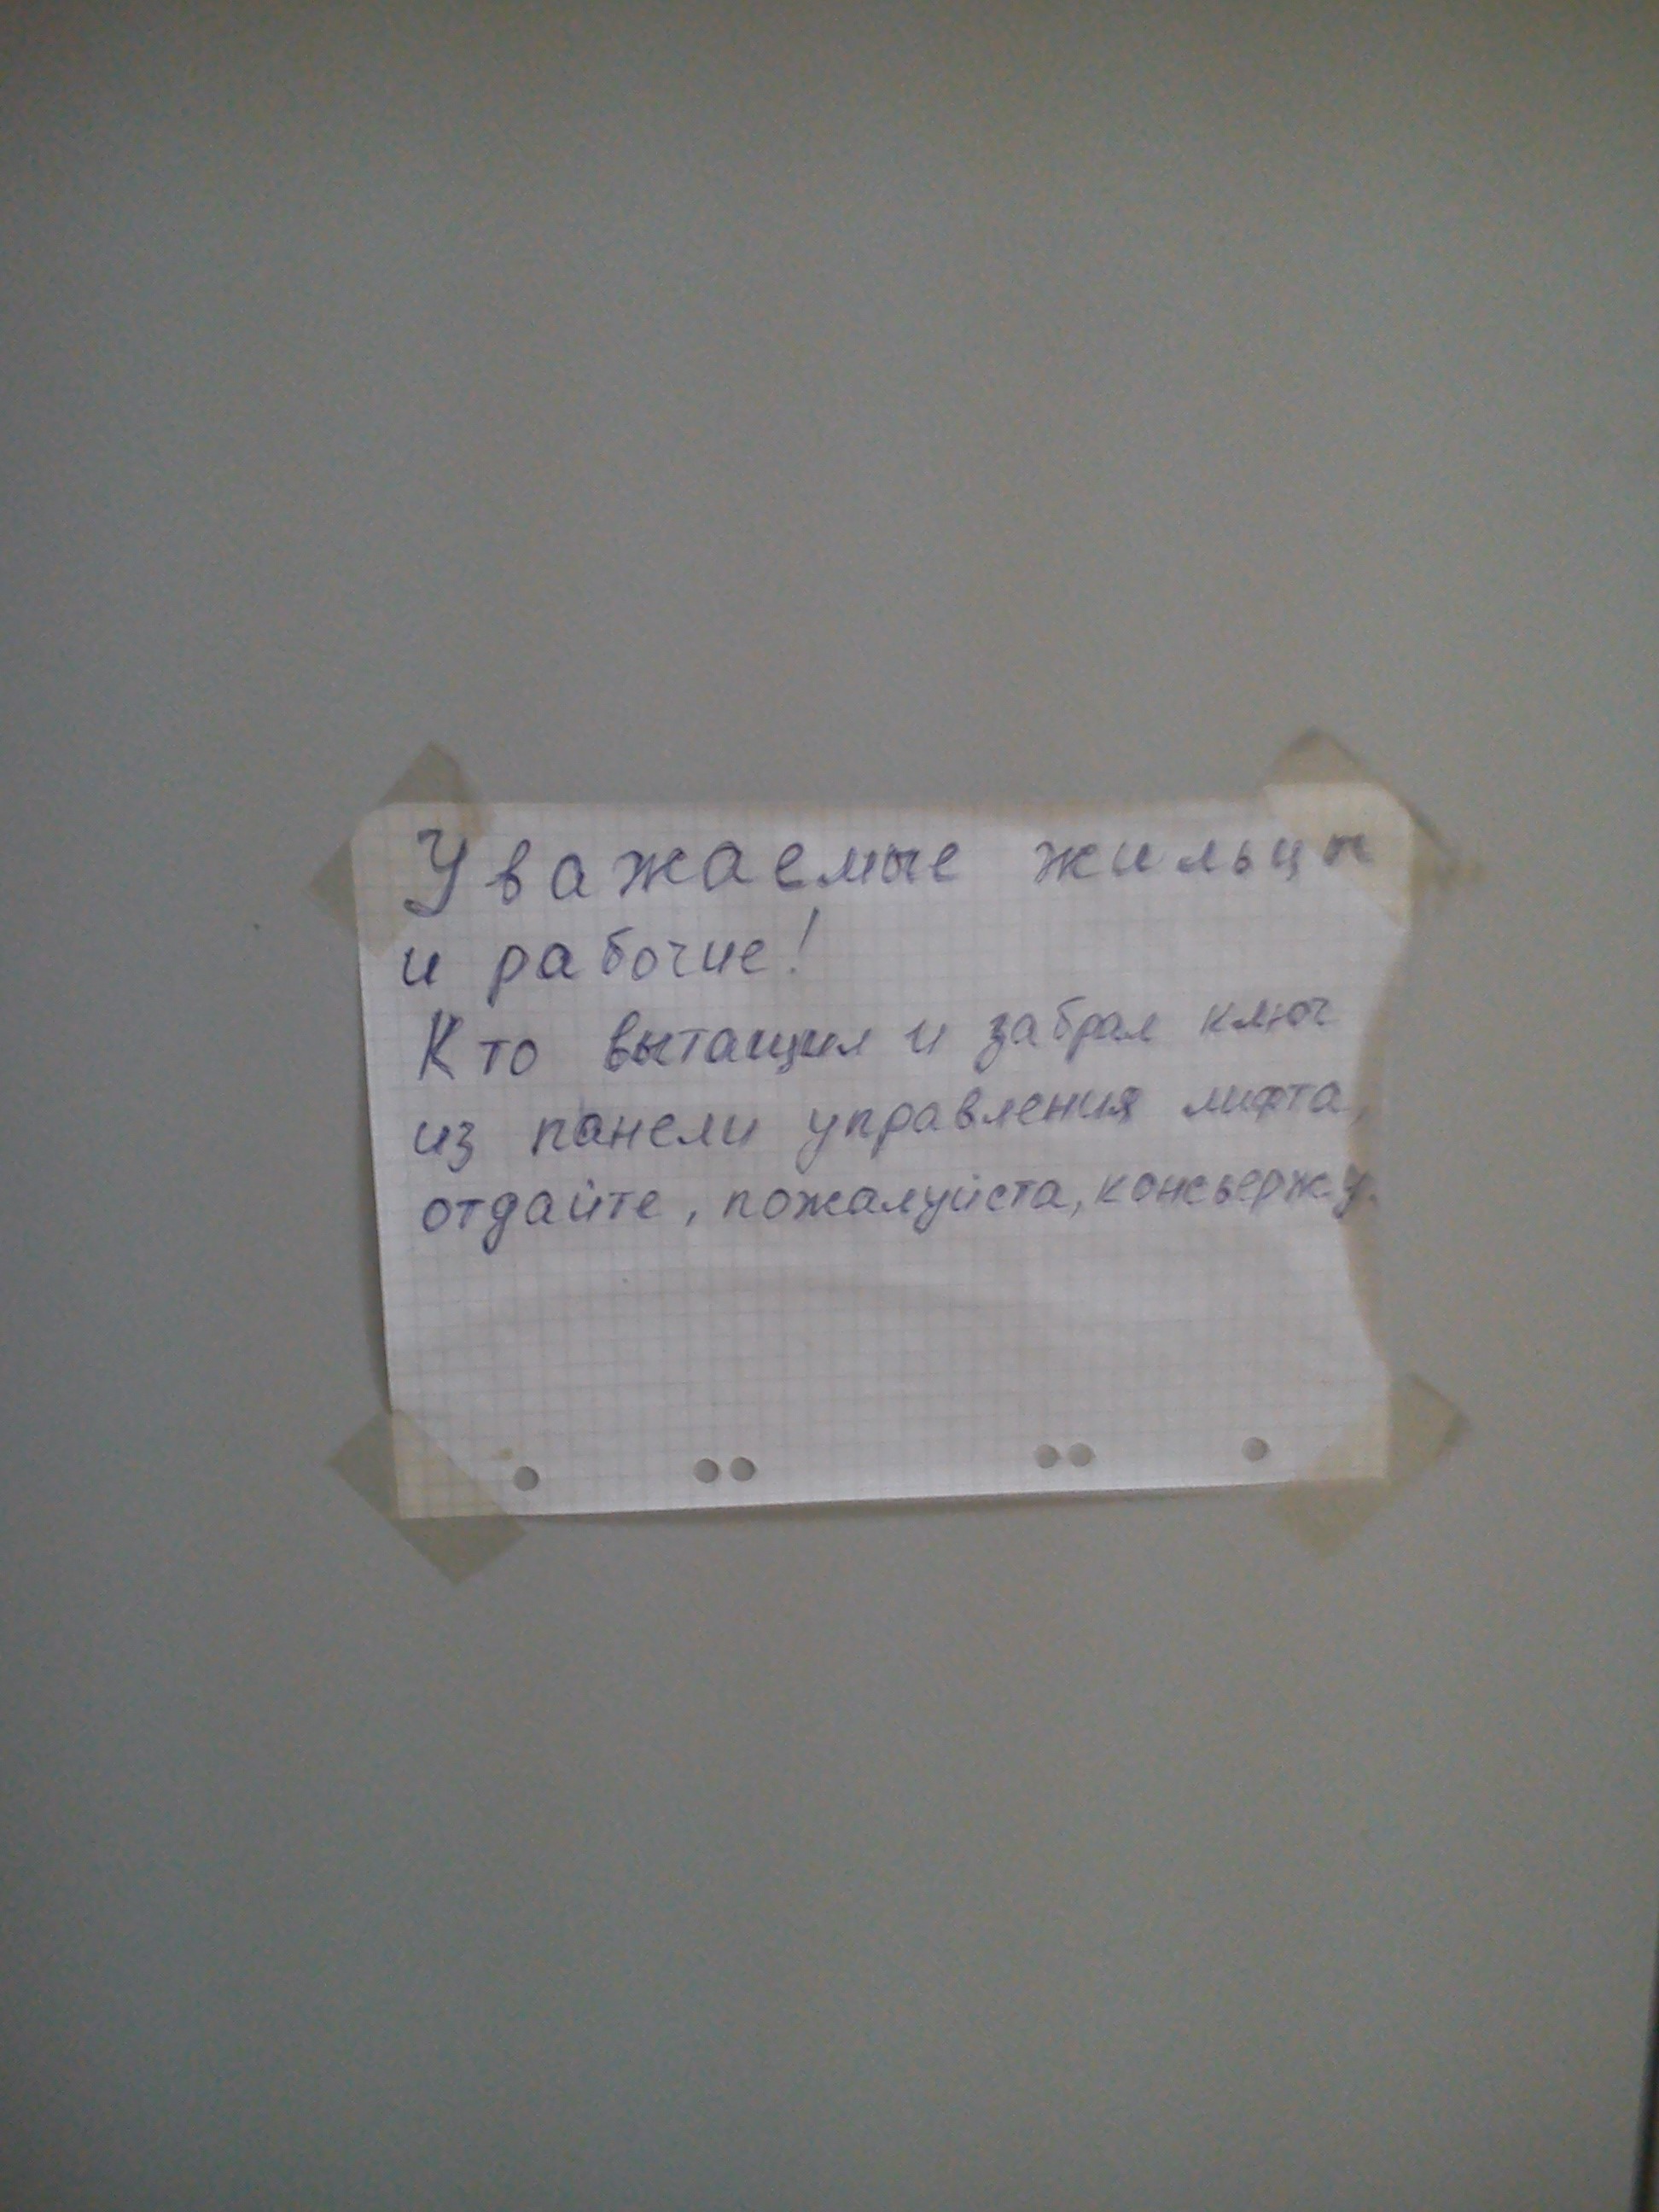 Уважаемые жильцы
и рабочие!
Кто вытащил и забрал ключ
из панели управления лифта,
отдайте, пожалуйста, консьержу.